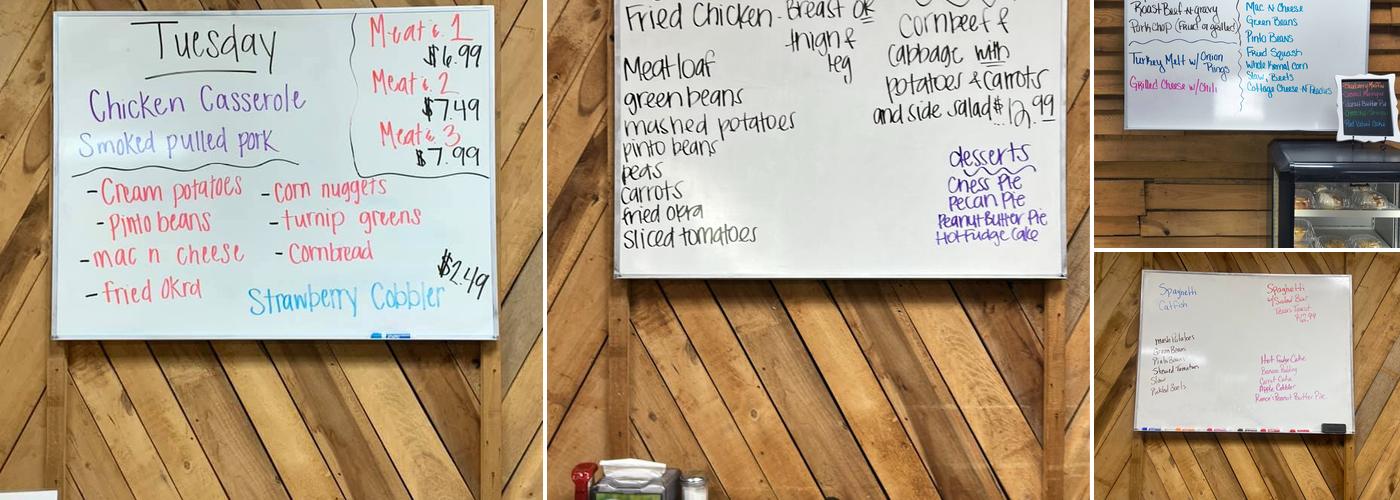 Tuesday
Chicken Casserole
Smoked pulled pork
Meat & 1
$6.99
Meat & 2
$7.49
Meat & 3
$7.99
- Cream potatoes
- Pinto beans
- mac n cheese
- fried okra
- corn nuggets
- turnip greens
- Cornbread
Strawberry Cobbler
$2.49
Fried Chicken - Breast or
thigh &
leg
Meatloaf
green beans
mashed potatoes
pinto beans
peas
carrots
fried okra
sliced tomatoes
Cornbeef &
cabbage with
potatoes & carrots
and side salad $12.99
desserts
Chess Pie
Pecan Pie
Peanut Butter Pie
Hot Fudge Cake
Roast Beef n gravy
Pork Chop (Fried or grilled)
Turkey Melt w/ Onion
Rings
Grilled Cheese w/ Chili
Mac N Cheese
Green Beans
Pinto Beans
Fried Squash
Whole Kernel Corn
Slaw, Beets
Cottage Cheese N Peaches
Peanut Butter Pie
Red Velvet Cake
Spaghetti
Catfish
Spaghetti
w/ Salad Bar
Texas Toast
$12.99
Mash Potatoes
Green Beans
Pinto Beans
Stewed Tomatoes
Slaw
Pickled Beets
Hot Fudge Cake
Banana Pudding
Carrot Cake
Apple Cobbler
Peanut Butter Pie